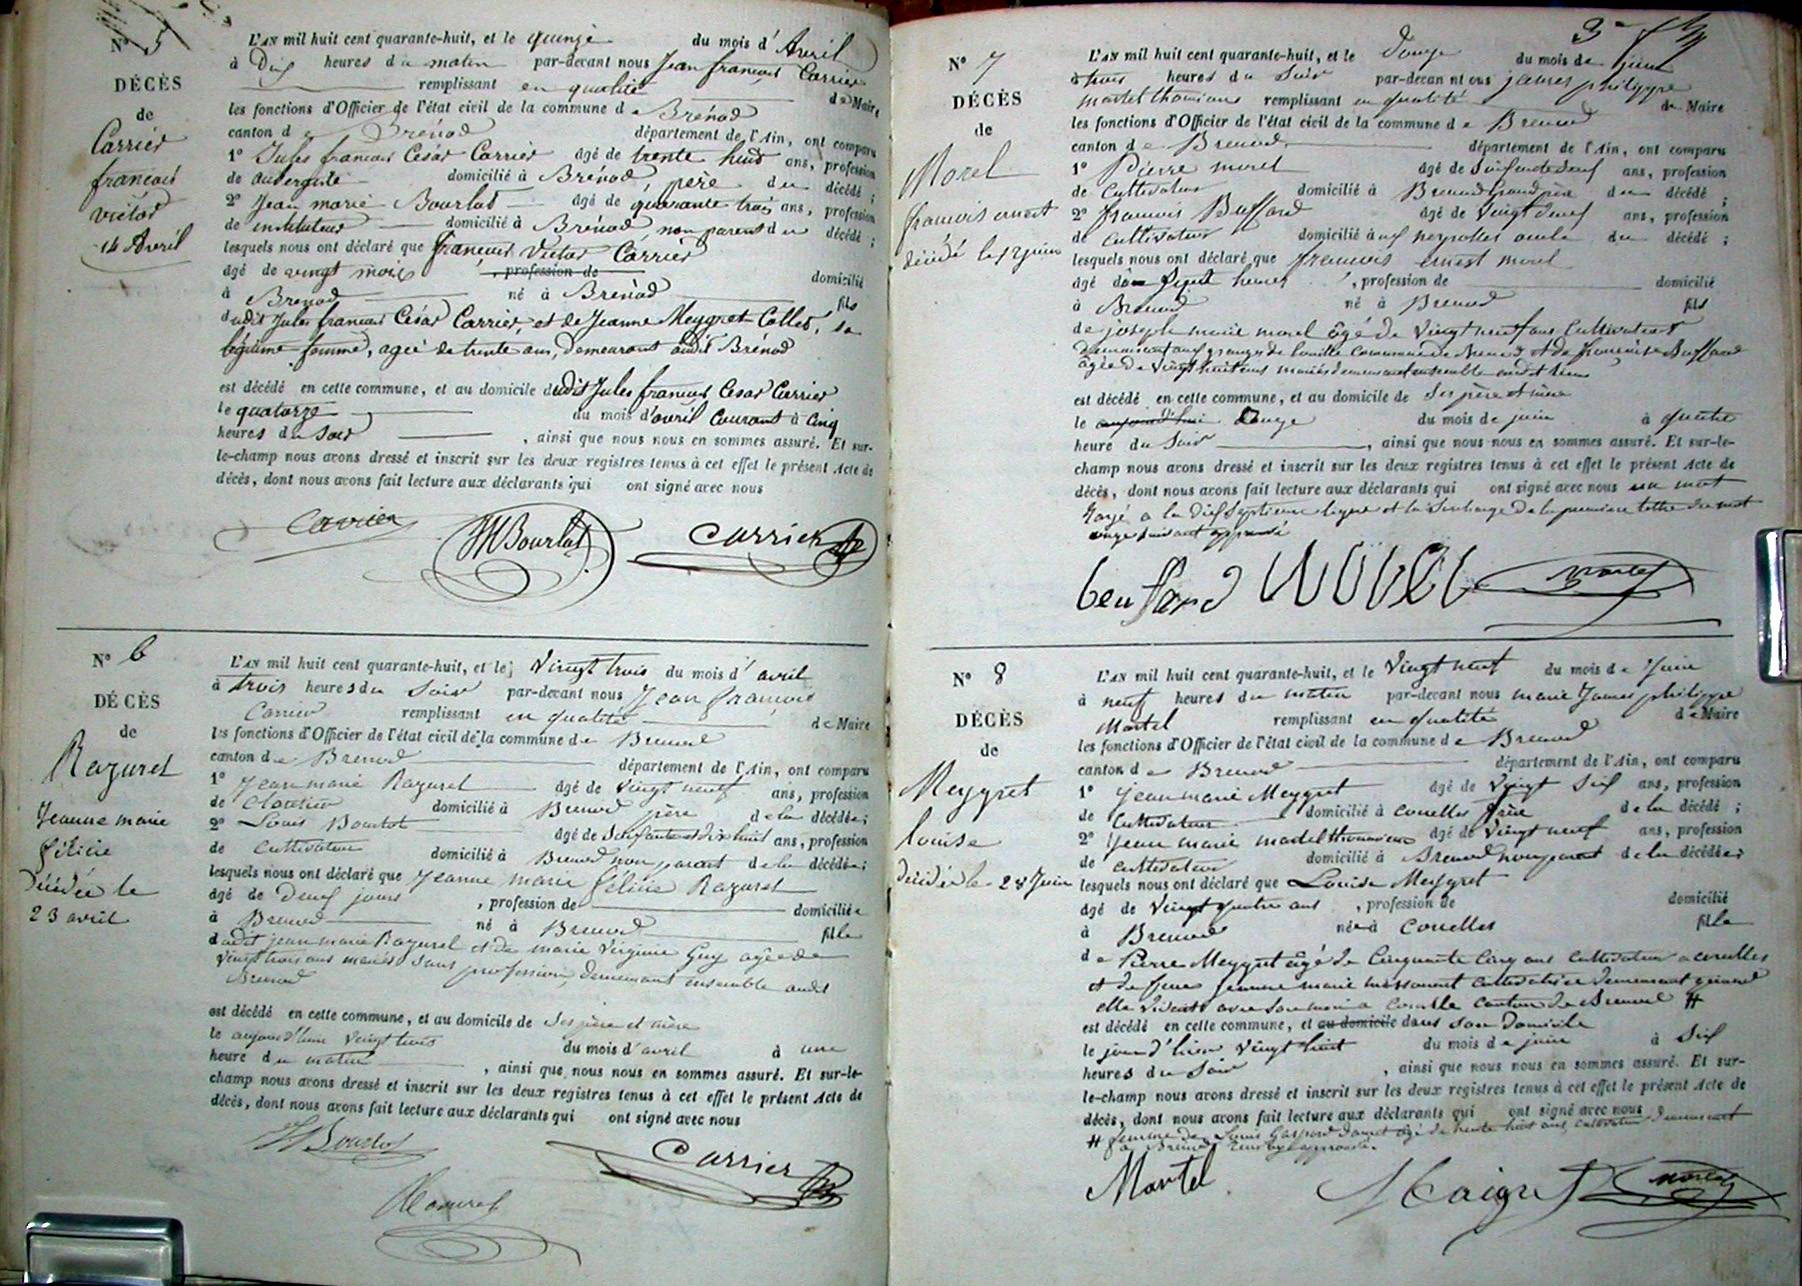 N° 5
DÉCÈS
de
Carrier
françois
victor
14 Avril
L'AN mil huit cent quarante-huit, et le quinze du mois d'Avril
à Dix heures du matin par-devant nous Jean françois Carrier
remplissant en qualité de Maire
les fonctions d'Officier de l'état civil de la commune de Brénod
canton de Brénod département de l'Ain, ont comparu
1° Jules françois César Carrier âgé de trente huit ans, profession
de aubergiste domicilié à Brénod, père du décédé ;
2° Jean marie Bourlot âgé de quarante trois ans, profession
de instituteur domicilié à Brénod non parent du décédé ;
lesquels nous ont déclaré que françois Victor Carrier
âgé de vingt mois , profession de domicilié
à Brenod né à Brénod fils
dudit Jules françois César Carrier, et de Jeanne Meygret Collet, sa
légitime femme, agée de trente ans, demeurant audit Brénod
est décédé en cette commune, et au domicile dudit Jules françois César Carrier
le quatorze du mois d'avril Courant à Cinq
heures du soir , ainsi que nous nous en sommes assuré. Et sur-
le-champ nous avons dressé et inscrit sur les deux registres tenus à cet effet le présent Acte de
décès, dont nous avons fait lecture aux déclarants qui ont signé avec nous
Carrier JMBourlot Carrier
N° 6
DÉCÈS
de
Razurel
Jeanne marie
félicie
Décédée le
23 avril
L'AN mil huit cent quarante-huit, et le Vingt trois du mois d'avril
à trois heures du Soir par-devant nous Jean françois
Carrier remplissant en qualité de Maire
les fonctions d'Officier de l'état civil de la commune de Brenod
canton de Brenod département de l'Ain, ont comparu
1° Jean marie Razurel âgé de vingt neuf ans, profession
de domicilié à Brenod père de la décédée ;
2° Louis Bourlot âgé de Soixante et dix huit ans, profession
de Cultivateur domicilié à Brenod non parent de la décédée ;
lesquels nous ont déclaré que Jeanne marie félicie Razurel
âgé de deux jours , profession de domiciliée
à Brenod né à Brenod fille
dudit jean marie Razurel et de marie Virginie Guy agée de
vingt trois ans mariés Sans profession, demeurant ensemble audit
Brenod
est décédé en cette commune, et au domicile de Ses père et mère
le aujourd'hui vingt trois du mois d'avril à une
heure du matin , ainsi que nous nous en sommes assuré. Et sur-le-
champ nous avons dressé et inscrit sur les deux registres tenus à cet effet le présent Acte de
décès, dont nous avons fait lecture aux déclarants qui ont signé avec nous
Bourlot Carrier
Razurel
N° 7
DÉCÈS
de
Morel
françois ernest
décédé le 12 juin
L'AN mil huit cent quarante-huit, et le Douze du mois de juin
à trois heures du Soir par-devant nous james philippe
martel thomians remplissant en qualité de Maire
les fonctions d'Officier de l'état civil de la commune de Brenod
canton de Brenod département de l'Ain, ont comparu
1° Pierre morel âgé de ans, profession
de Cultivateur domicilié à Brenod Grand père du décédé ;
2° françois Buffard âgé de Vingt deux ans, profession
de Cultivateur domicilié à oncle du décédé ;
lesquels nous ont déclaré que françois ernest morel
âgé de Sept heures , profession de domicilié
à Brenod né à Brenod fils
de joseph marie morel âgé de Vingt neuf ans Cultivateur
demeurant aux granges de commune de Brenod et de françoise Buffard
âgée de Vingt huit ans mariés demeurant ensemble audit lieu
est décédé en cette commune, et au domicile de Ses père et mère
le aujourd'hui Douze du mois de juin à quatre
heure du Soir , ainsi que nous nous en sommes assuré. Et sur-le-
champ nous avons dressé et inscrit sur les deux registres tenus à cet effet le présent Acte de
décès, dont nous avons fait lecture aux déclarants qui ont signé avec nous un mot
Rayé a la dix Septieme ligne et la Surcharge de la premiere lettre du mot
onze suivant approuvé
beuffard morel martel
N° 8
DÉCÈS
de
Meygret
louise
Décédée le 28 Juin
L'AN mil huit cent quarante-huit, et le Vingt neuf du mois de Juin
à neuf heures du matin par-devant nous marie James philippe
Martel remplissant en qualité de Maire
les fonctions d'Officier de l'état civil de la commune de Brenod
canton de Brenod département de l'Ain, ont comparu
1° Jean marie Meygret âgé de Vingt Six ans, profession
de Cultivateur domicilié à Corcelles frère de la décédé ;
2° Jean marie martel thomians âgé de Vingt neuf ans, profession
de Cultivateur domicilié à Brenod non parent de la décédée ;
lesquels nous ont déclaré que Louise Meygret
âgé de Vingt quatre ans , profession de domicilié
à Brenod née à Corcelles fille
de Pierre Meygret âgé de Cinquante Cinq ans Cultivateur a corcelles
et de feue jeanne marie cultivatrice demeurant quand
elle Vivait avec son mari a Corcelle canton de Brenod #
est décédé en cette commune, et au domicile dans son domicile
le jour d'hier Vingt huit du mois de juin à Six
heures du Soir , ainsi que nous nous en sommes assuré. Et sur-
le-champ nous avons dressé et inscrit sur les deux registres tenus à cet effet le présent Acte de
décès, dont nous avons fait lecture aux déclarants qui ont signé avec nous
# femme de Louis Gaspard âgé de trente huit ans cultivateur demeurant
a Brenod Renvoi approuvé.
Martel Maigret martel